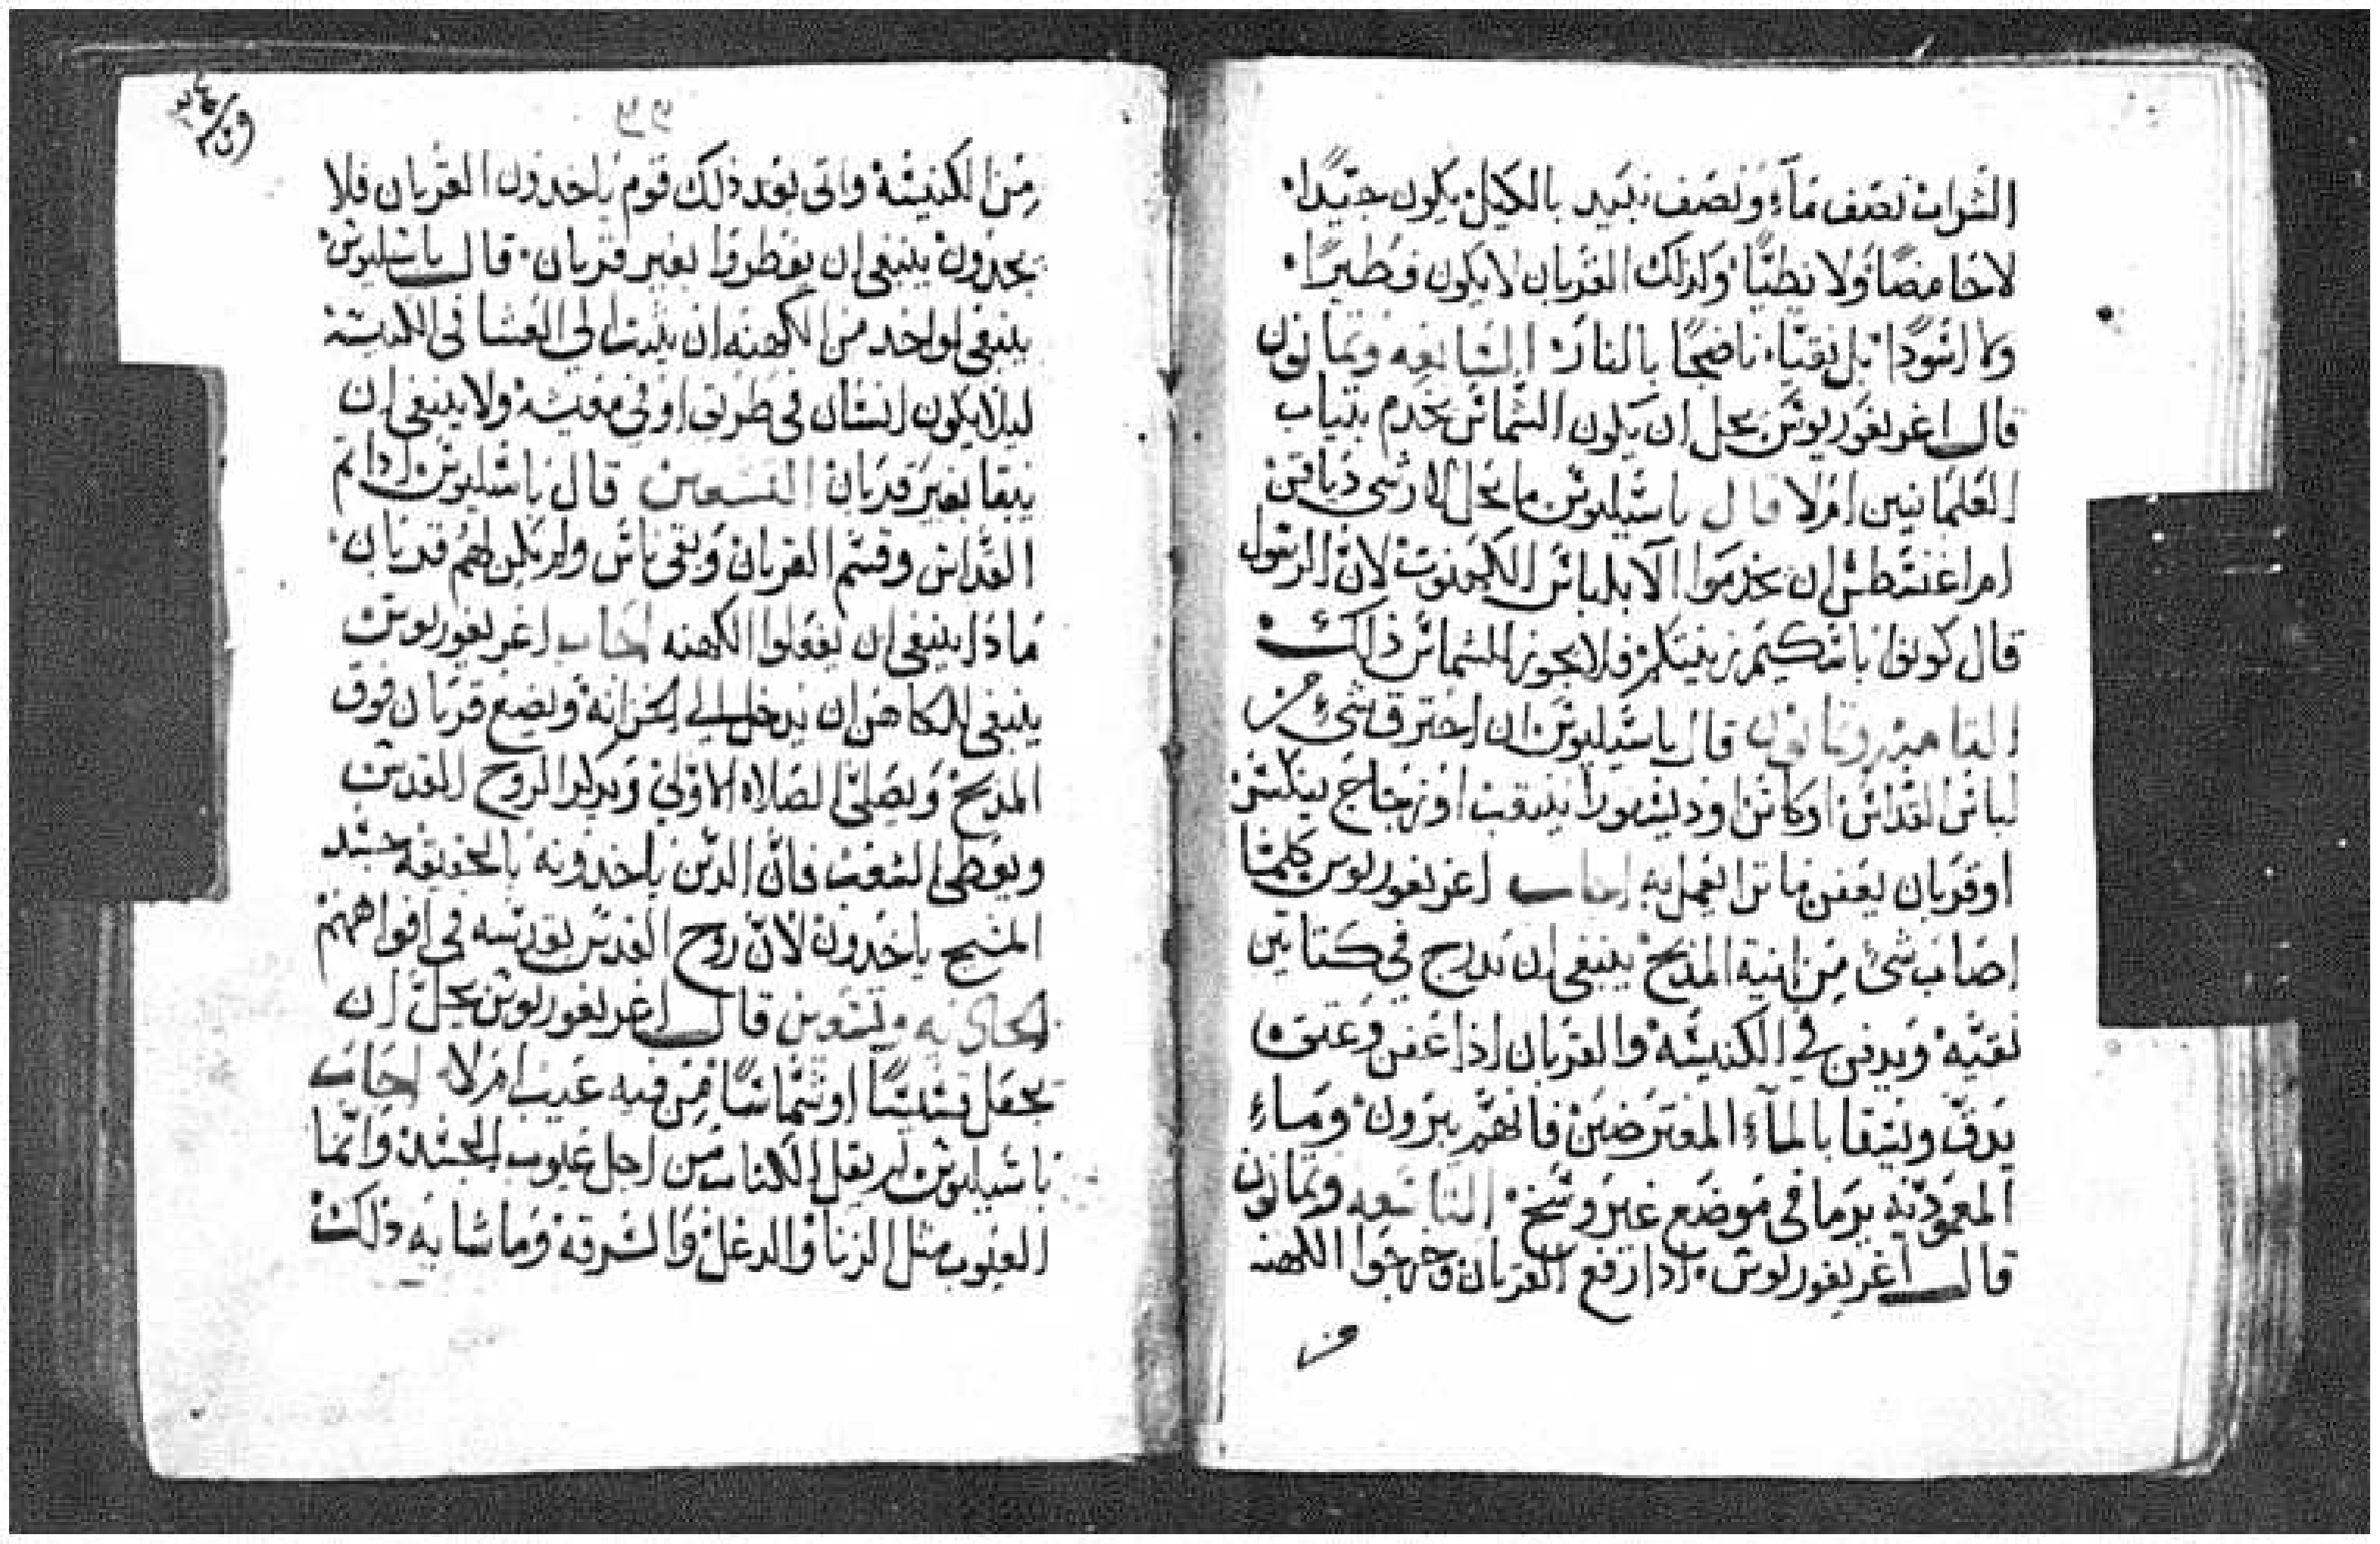 الشراب نصف مآء ونصف نبيد بالكيل يكون جيّدا.
لا حامضًا ولا نطيًّا ولدلك القربان لا يكون فطيرًا.
ولا اسودا بل نقيّا ناضجًا بالنار السابعه وثمانون
قال اغريغوريوس يحل ان يكون الشماس يخدم بتياب
العلمانيين ام لا قال باسيليوس ما يحل لارشي دياقن
ام اغنسطس ان يخدموا الا بلباس الكهنوت لان الرسول
قال كونوا باسكيم زينتكم فلا يجوز للشماس ذلك
الثامنه وثمانون قال باسيليوس ان احترق شيء من
لباس القداس او كاس او ينتقب او زجاج ينكسر
او قربان يعفن ما ترا نعمل به اجاب اغريغوريوس كلما
اصاب شئ من انية المذبح ينبغي ان تدرج في كتاتين
نقيّه ويدفن في الكنيسه والقربان اذا عفن وعتق
يدق ويسقا بالمآء للمفترضين فانهم يبرون وماء
المعموديه يرما في موضع غير وسخ التاسعه وثمانون
قال اغريغوريوس ادا رفع القربان وخرجوا الكهنه
من
٩٩
من الكنيسة واتى بعد ذلك قوم ياخدون القربان فلا
يجدون ينبغي ان يفطروا بغير قربان. قال باسيليوس
ينبغي لواحد من الكهنه ان يلبث الي العشا في الكنيسة
ليلا يكون انسان في طريق او في معيشه ولا ينبغي ان
يبقا بغير قربان التسعين قال باسيليوس ادا تم
القداس وقسم القربان وبقى ناس ولم يكن لهم قربان.
مادا ينبغي ان يفعلوا الكهنه اجاب اغريغوريوس
ينبغي للكاهن ان يدخل الي الخزانه ويضع قربان فوق
المدبح ويصلّى الصلاه الاولي ويدكر الروح القدس
ويعطى الشعب فان الدين ياخدونه بالحقيقه جسد
المسيح ياخدون لان روح القدس يقدسه في افواههم
الحاديه وتسعين قال اغريغوريوس يحلّ ان
يجعل قسيسًا او شماسًا من فيه عيب ام لا اجاب
باسيليوس لم يقل الكتاب من اجل عيوب الجسد وانما
العيوب مثل الزنا والدغل والسرقه وما شابه ذلك